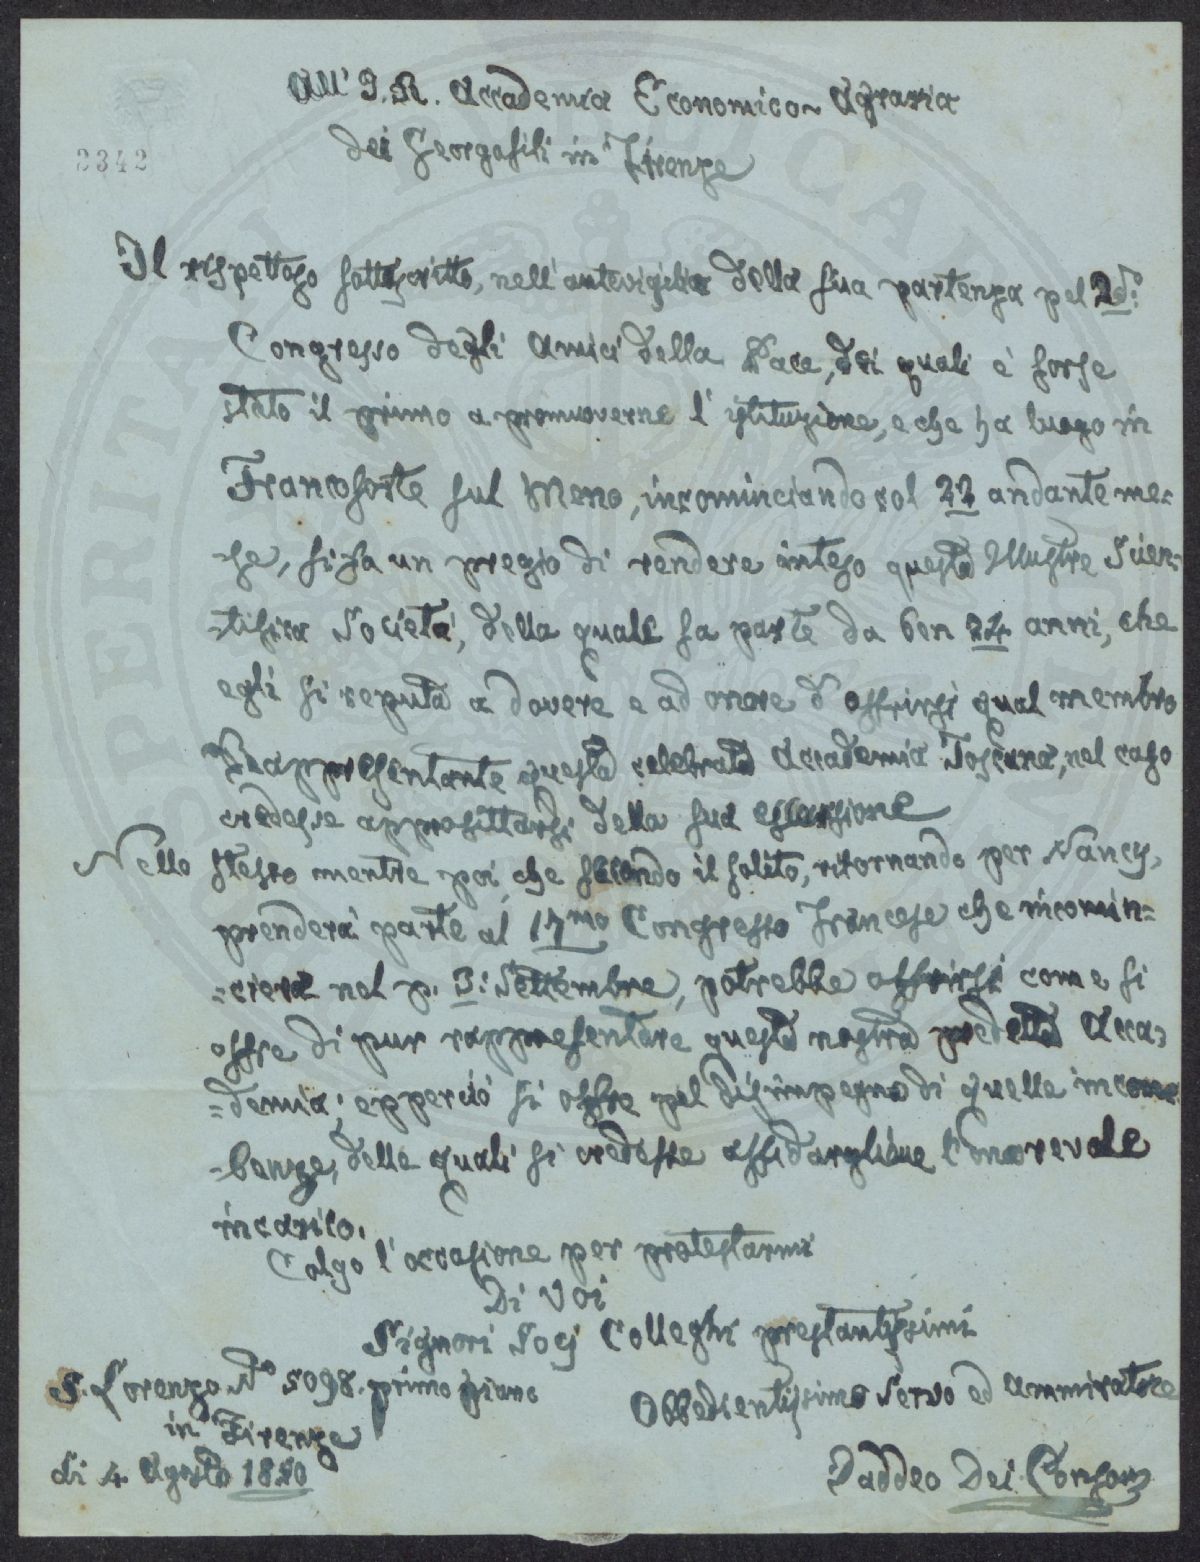 All' I. R. Accademia Economico-Agraria
dei Georgofili in Firenze
2342
Il rispettoso sottoscritto, nell'antevigilia della sua partenza pel 2do:
Congresso degli Amici della Pace, dei quali è forse
stato il primo a promuoverne l'istituzione, e che ha luogo in
Francoforte sul Meno, incominciando col 22 andante me=
=se, si fa un pregio di rendere inteso questa Illustre Scien=
=tifica Società, della quale fa parte da ben 24 anni, che
egli si reputa a dovere e ad onore d'offrirsi qual membro
Rappresentante questa celebrata Accademia Toscana, nel caso
credesse approfittarsi della sua escursione
Nello stesso mentre poi, che secondo il solito, ritornando per Nancy,
prenderà parte al 17mo Congresso Francese che incomin=
=cierà nel p. 3: Settembre, potrebbe offrirsi come si
offre di pur rappresentare questa nostra predetta Acca=
=demia; epperciò si offre pel disimpegno di quelle incom
=benze, delle quali si credesse affidargliene l'onorevole
incarico.
Colgo l'occasione per protestarmi
Di Voi
Signori Socj Colleghi prestantissimi
S. Lorenzo No 5098. primo piano
Obbedientissimo Servo ed Ammiratore
in Firenze
di 4. Agosto 1850
Taddeo Dei Consoni
PROSPERITATI PVBLICAE AVGENDAE